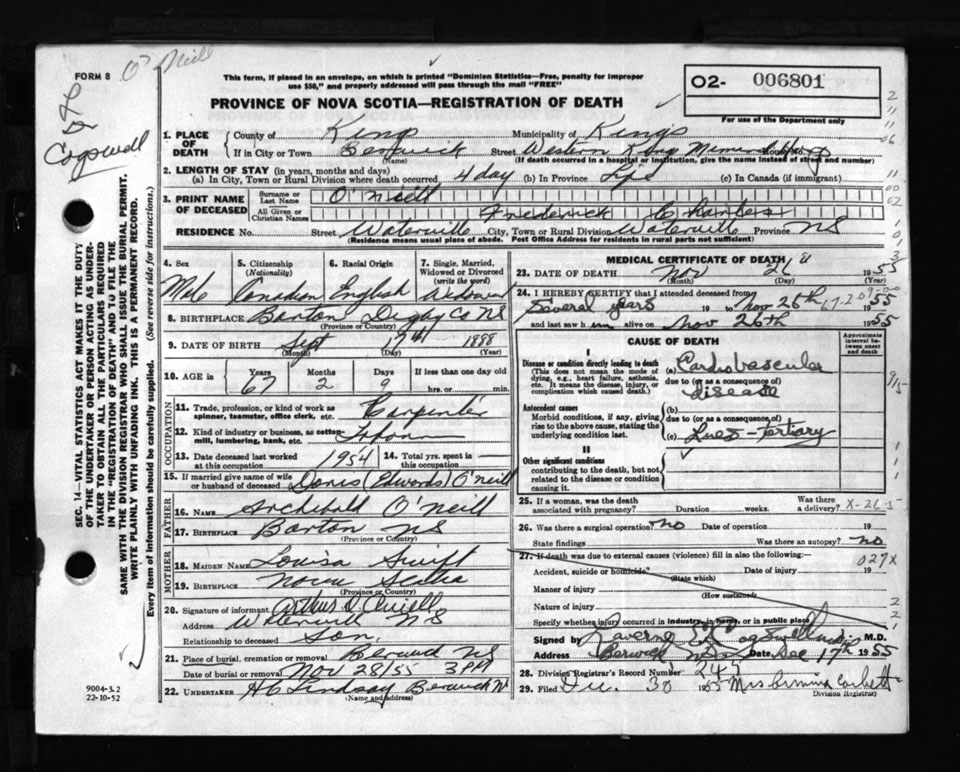 FORM 8 O'Neill
This form, if placed in an envelope, on which is printed "Dominion Statistics—Free, penalty for improper
use $50," and properly addressed will pass through the mail "FREE"
PROVINCE OF NOVA SCOTIA—REGISTRATION OF DEATH
O2- 006801
For use of the Department only
L
Dr
Cogswell
1. PLACE OF DEATH County of Kings Municipality of Kings
If in City or Town Berwick (Name) Street Western Kings Memorial Hosp
(If death occurred in a hospital or institution, give the name instead of street and number)
2. LENGTH OF STAY (in years, months and days)
(a) In City, Town or Rural Division where death occurred 4 day (b) In Province Life (c) In Canada (if immigrant)
3. PRINT NAME OF DECEASED Surname or Last Name O'Neill
All Given or Christian Names Frederick Charles
RESIDENCE No. Street Waterville City, Town or Rural Division Waterville Province NS
(Residence means usual place of abode. Post Office Address for residents in rural parts not sufficient)
4. Sex Male
5. Citizenship (Nationality) Canadian
6. Racial Origin English
7. Single, Married, Widowed or Divorced (write the word) Widower
8. BIRTHPLACE Barton Digby Co NS
(Province or Country)
9. DATE OF BIRTH Sept 17th 1888
(Month) (Day) (Year)
10. AGE in Years 67 Months 2 Days 9 If less than one day
hrs. or min.
OCCUPATION
11. Trade, profession, or kind of work as spinner, teamster, office clerk, etc. Carpenter
12. Kind of industry or business, as cotton-mill, lumbering, bank, etc.
13. Date deceased last worked at this occupation 1954 14. Total yrs. spent in this occupation
15. If married give name of wife or husband of deceased Doris (Edwards) O'Neill
FATHER
16. NAME Archibald O'Neill
17. BIRTHPLACE Barton NS
(Province or Country)
MOTHER
18. MAIDEN NAME Louisa Swift
19. BIRTHPLACE Nova Scotia
(Province or Country)
20. Signature of informant Arthur O'Neill
Address Waterville NS
Relationship to deceased Son
21. Place of burial, cremation or removal Berwick NS
Date of burial or removal NOV 28/55 3 PM
22. UNDERTAKER H C Lindsay Berwick NS
(Name and address)
MEDICAL CERTIFICATE OF DEATH
23. DATE OF DEATH Nov 26 1955
(Month) (Day) (Year)
24. I HEREBY CERTIFY that I attended deceased from
Several years 19 to Nov 26th 1955
and last saw him alive on Nov 26th 1955
CAUSE OF DEATH
Approximate interval between onset and death
I
Disease or condition directly leading to death
(This does not mean the mode of dying, e.g., heart failure, asthenia, etc. It means the disease, injury, or complication which caused death.)
(a) Cardiovascular
due to (or as a consequence of)
Disease
Antecedent causes
Morbid conditions, if any, giving rise to the above cause, stating the underlying condition last.
(b)
due to (or as a consequence of)
(c) Lues - Tertiary
II
Other significant conditions
contributing to the death, but not related to the disease or condition causing it.
25. If a woman, was the death associated with pregnancy? Duration weeks. Was there a delivery? X-26-5
26. Was there a surgical operation? no Date of operation 19
State findings Was there an autopsy? no
27. If death was due to external causes (violence) fill in also the following:— 027X
Accident, suicide or homicide? (State which) Date of injury 19
Manner of injury
(How sustained)
Nature of injury
Specify whether injury occurred in industry, in home, or in public place
Signed by Laverne Cogswell M.D.
Address Berwick NS Date Dec 17th 1955
28. Division Registrar's Record Number 247
29. Filed Dec. 30 1955 Mrs Corbett
Division Registrar)
SEC. 14—VITAL STATISTICS ACT MAKES IT THE DUTY
OF THE UNDERTAKER OR PERSON ACTING AS UNDER-
TAKER TO OBTAIN ALL THE PARTICULARS REQUIRED
IN THE "REGISTRATION OF DEATH" AND TO FILE THE
SAME WITH THE DIVISION REGISTRAR WHO SHALL ISSUE THE BURIAL PERMIT.
WRITE PLAINLY WITH UNFADING INK. THIS IS A PERMANENT RECORD.
Every item of information should be carefully supplied. (See reverse side for instructions.)
9004-3.2
22-10-52